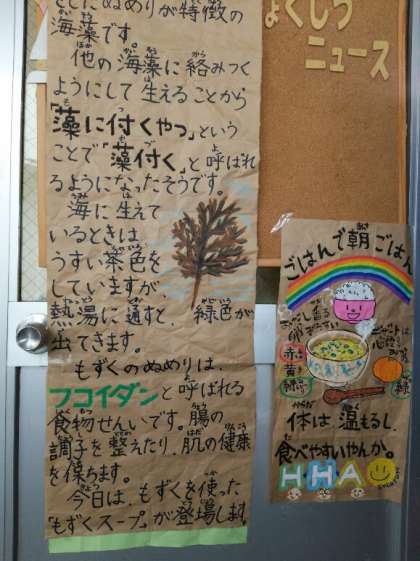 としたぬめりが特徴の
海藻です。
他の海藻に絡みつく
ようにして生えることから
「藻に付くやつ」という
ことで「藻付く」と呼ばれ
るようになったそうです。
海に生えて
いるときは
うすい茶色を
していますが
熱湯に通すと、緑色が
出てきます。
もずくのぬめりは、
フコイダンと呼ばれる
食物せんいです。腸の
調子を整えたり、肌の健康
を保ちます。
今日は、もずくを使った
「もずくスープ」が登場します
ょくしつ
ニュース
ごはんで朝ごはん
赤
黄
緑
体は温まるし、
食べやすいやんか。
HHA